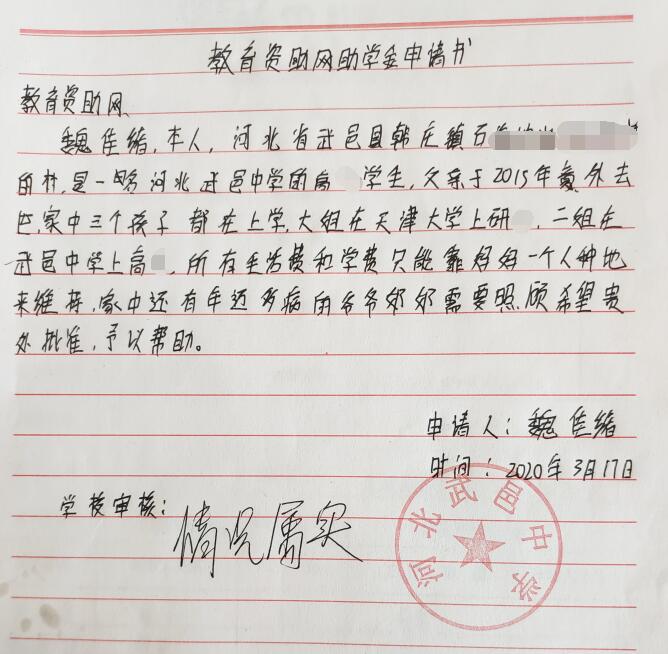 教育资助网助学金申请书
教育资助网
魏佳绪,本人,河北省武邑县韩庄镇
的村,是一名河北武邑中学的高 学生,父亲于2015年意外去
世,家中三个孩子都在上学,大姐在天津大学上研 ,二姐在
武邑中学上高 ,所有生活费和学费只能靠妈妈一个人种地
来维持,家中还有年迈多病的爷爷奶奶需要照顾希望贵
处批准,予以帮助。
申请人:魏佳绪
时间:2020年3月17日
学校审核:
情况属实
河北武邑中学